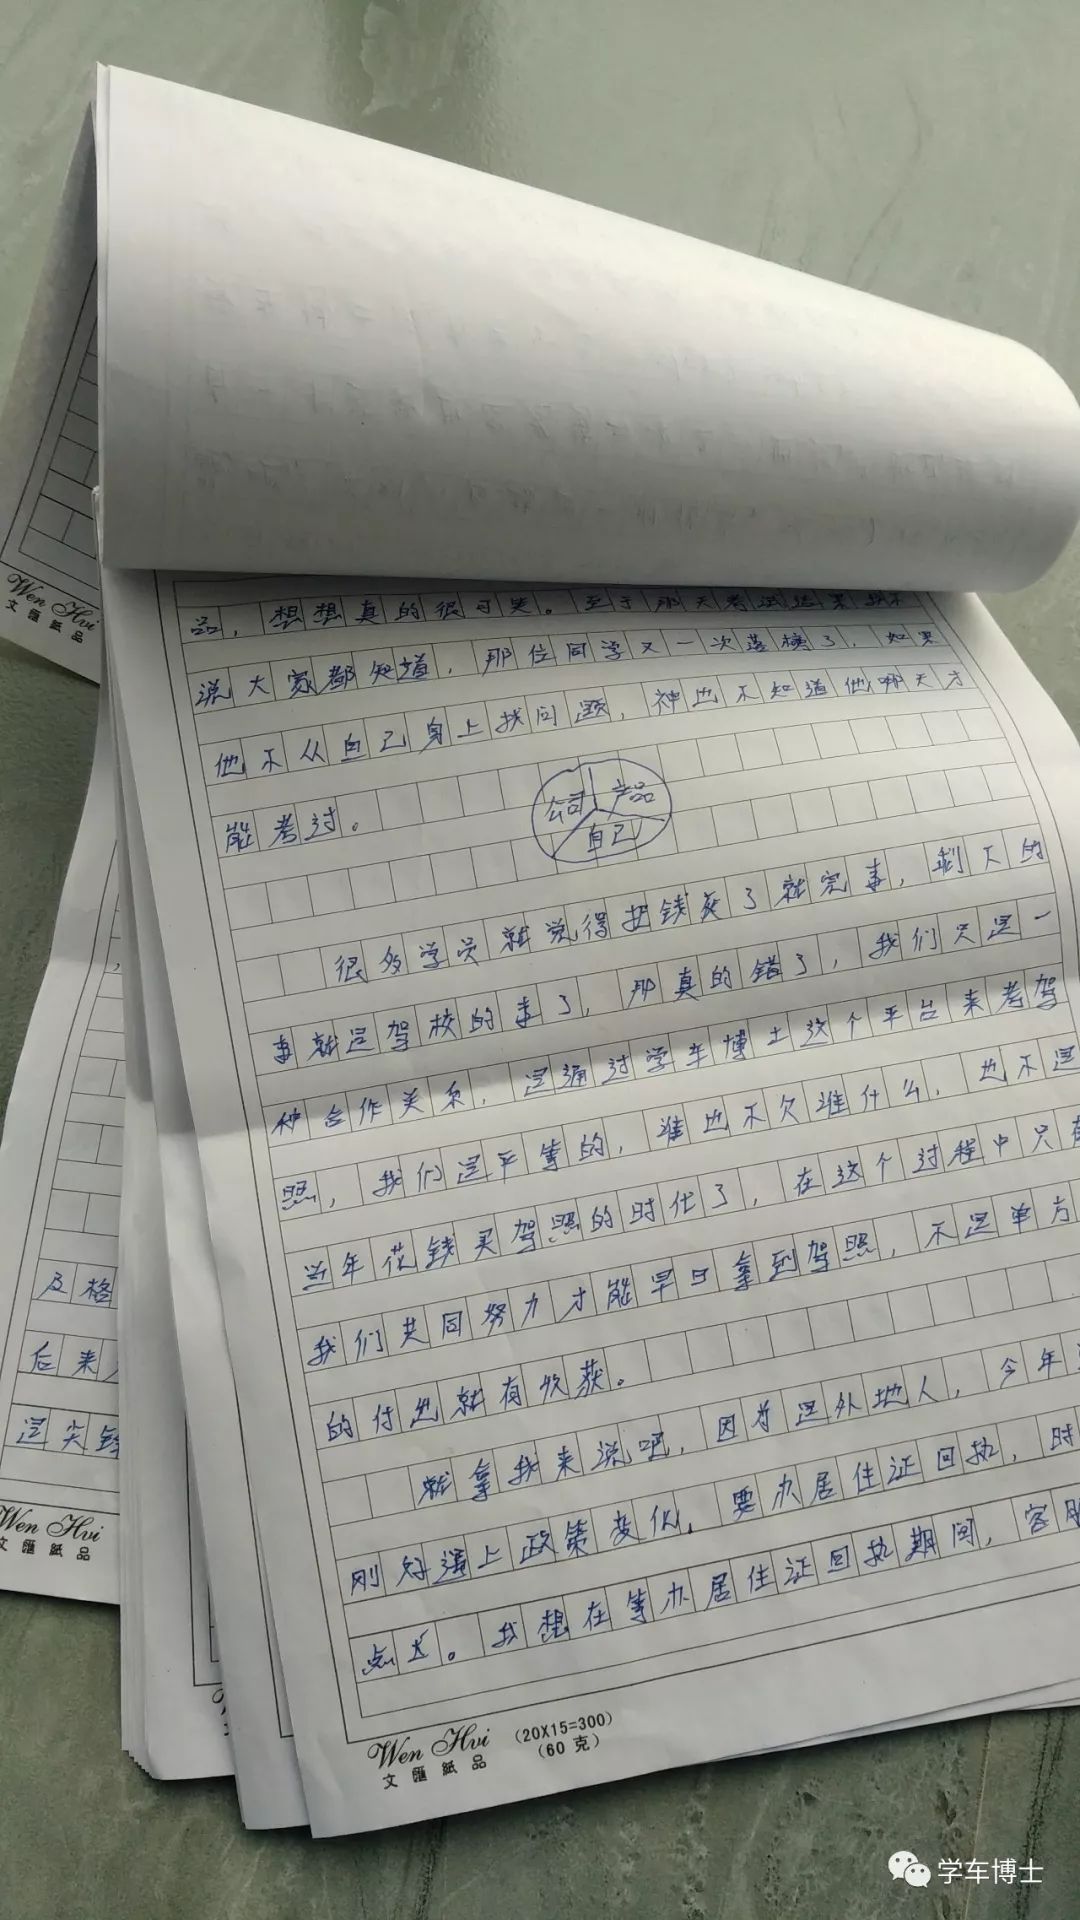 品，想想真的很可笑。至于那天考试结果我不
说大家都知道，那位同学又一次落榜了，如果
他不从自己身上找问题，神也不知道他哪天才
能考过。
公司 产品
自己
很多学员就觉得把钱交了就完事，剩下的
事就是驾校的事了，那真的错了，我们只是一
种合作关系，是通过学车博士这个平台来考驾
照，我们是平等的，谁也不欠谁什么，也不是
当年花钱买驾照的时代了，在这个过程中只有
我们共同努力才能早日拿到驾照，不是单方
的付出就有收获。
就拿我来说吧，因为是外地人，今年
刚好遇上政策变化，要办居住证回执，时
点长。我想在等办居住证回执期间，客服
Wen Hvi (20X15=300)
文匯紙品 (60克)
Wen Hvi
文匯紙品
及格
后来
是尖
Wen Hvi
文匯紙品
学车博士